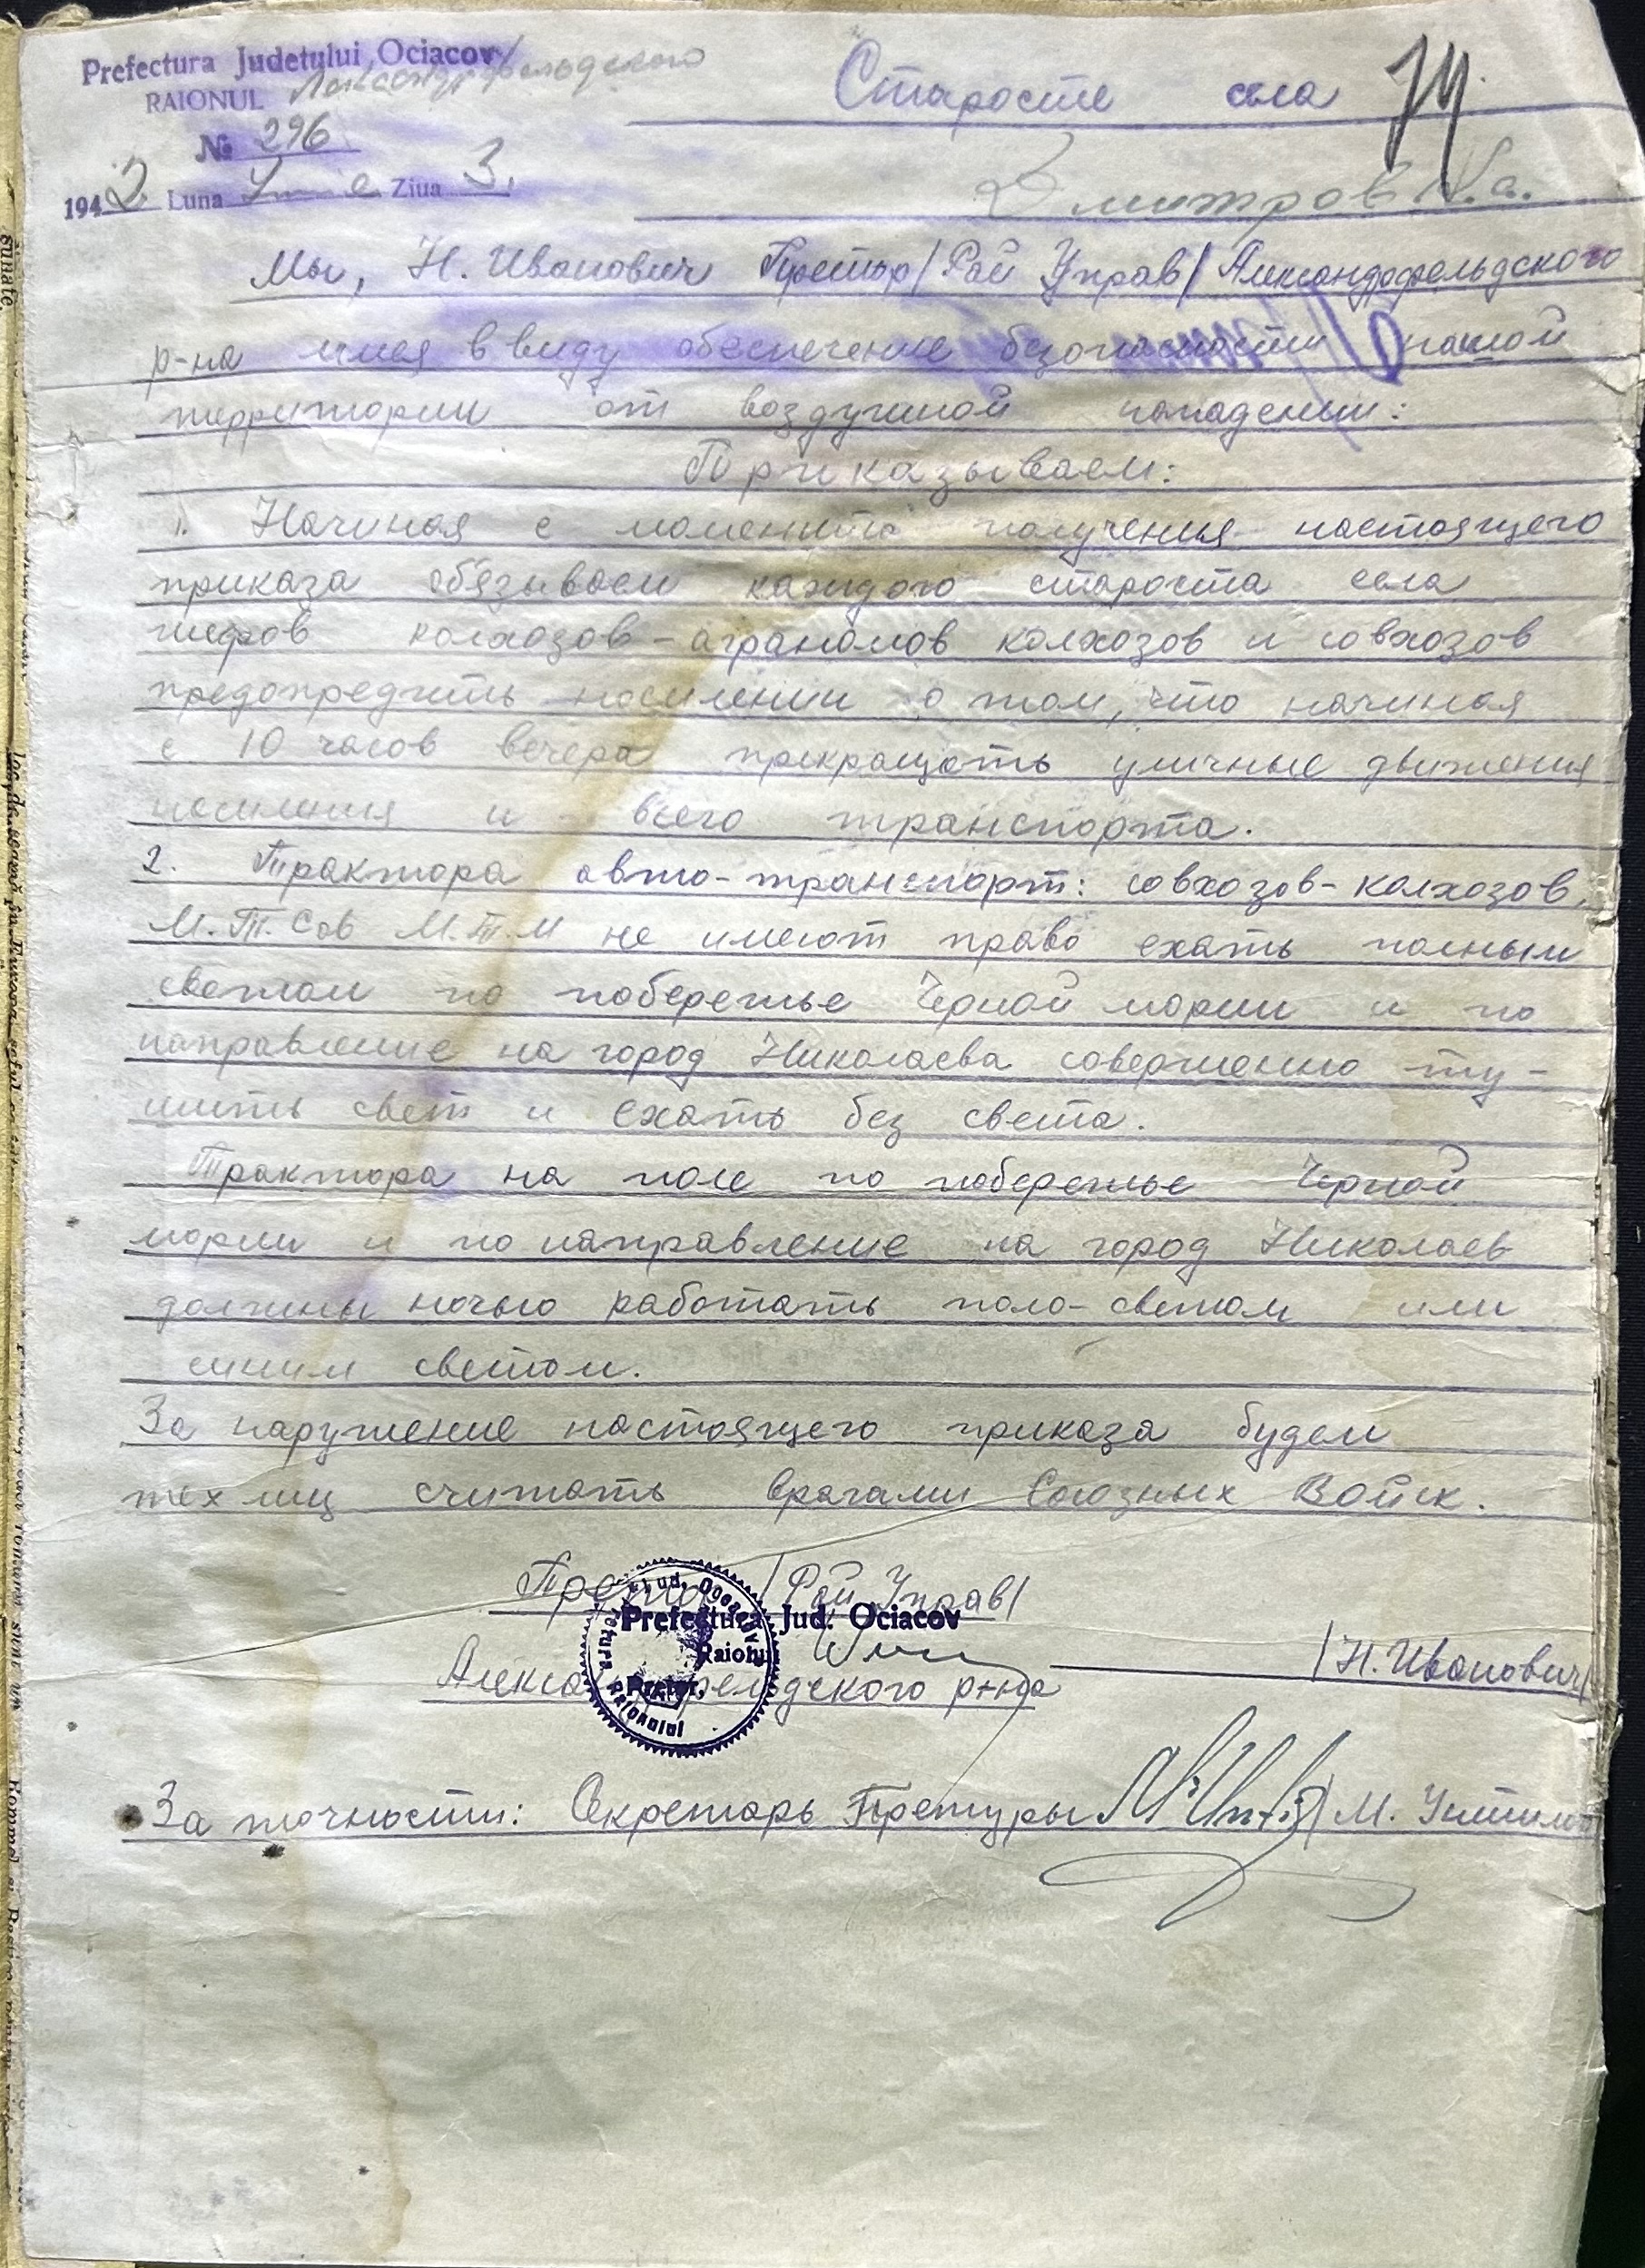 Prefectura Judetului Ociacov
RAIONUL Александрфельдского
№ 296
1942 Luna Iunie Ziua 3.
Старосте села 74
Дмитровка.
Мы, Н. Иванович Претор /Рай Управ/ Александрфельдского
р-на имея ввиду обеспечение безопасности нашой
территории от воздушной нападении:
Приказываем:
1. Начиная с момента получения настоящего
приказа обязываем каждого староста села
шефов колхозов-аграномов колхозов и совхозов
предопредить населении о том, что начиная
с 10 часов вечера прекращать уличные движения
населения и всего транспорта.
2. Трактора авто-транспорт: совхозов-колхозов,
М.Т.Сов М.Т.М не имеют право ехать полным
светом по побережье Черной мории и по
направление на город Николаева совершенно ту-
шить свет и ехать без света.
Трактора на поле по побережье Черной
мории и по направление на город Николаев
должны ночью работать поло-светом или
синим светом.
За нарушение настоящего приказа будем
тех лиц считать врагами Союзных Войск.
Претор /Рай Управ/
Prefectura Jud. Ociacov
Raionul
Александрфельдского р-на /Н. Иванович/
Pretor,
За точности: Секретарь Претуры / М. Унтила